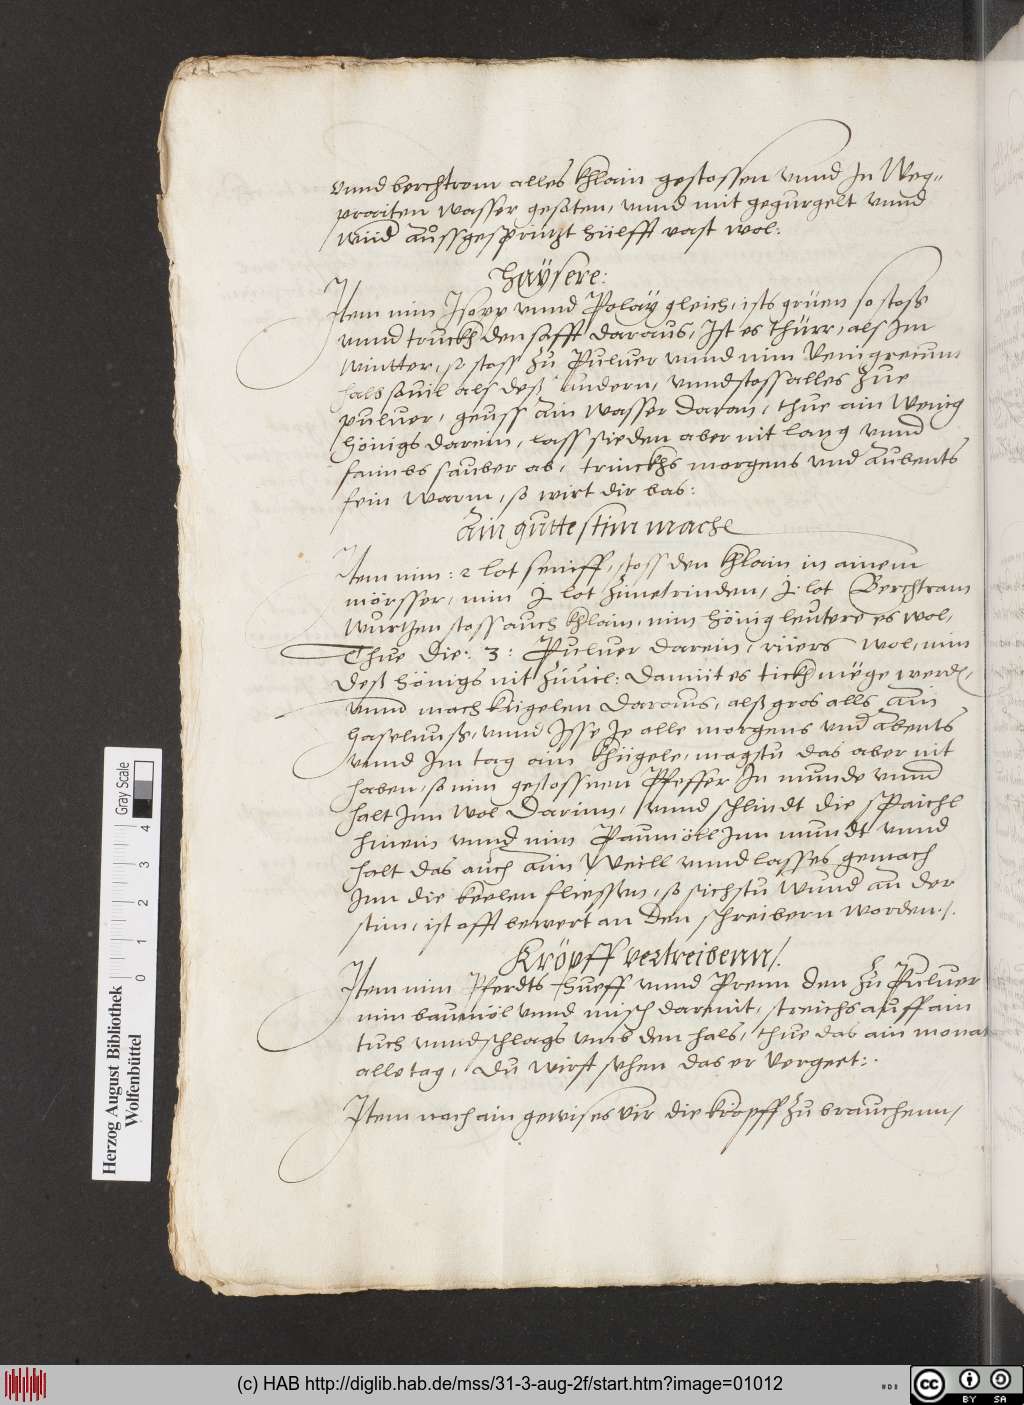 vnnd berchtram alles khlain gestossen vnnd In Weg=
praiten wasser gesoten, vnnd mit gegurgelt vnnd
wiid aůssgesprützt hülfft vast wol:
haÿsere:
Item nim Isopp vnnd Polaÿ gleich, ists grüen so stoss
vnnd truckh den safft daraus, Ist es Thürr, als Im
wintter, so stoss zu Puluer vnnd nim Fenigrecum
halb souil als deß andern, vnnd stoss alles zue
puluer, geuss ain wasser daran, thue ain wenig
hönigs darein, lass sieden aber nit lang vnnd
faimbs sauber ab, trinckhs morgens vnd aubents
fein warm, so wirt dir bas:
Ain gutte stim mache
Item nim: 2 lot seniff, stoss den khlain in ainem
mörsser, nim j lot Zimetrinden, j. lot Berchtram
wurtzen stoss auch khlain, nim hönig leutere es wol,
Thue die: 3: Puluer darein, rüers wol, nim
deß hönigs nit zuuil: damiit es tickh müge werdn,
vnnd mach kügelen daraus, alß gros alls ain
haselnuß, vnnd Isse Je alle morgens vnd abents
vnnd Im tag ain khügele, magstu das aber nit
haben, so nim gestossnen Pfeffer In munde vnnd
halt Jnn wol darinn, vnnd schlindt die spaichl
hinein vnnd nim Paumöll Jnn mundt vnnd
halt das auch ain Weill vnnd lasses gemach
Jnn die keelen fliessen, so sichstu wund an der
stim, ist offt bewert an den schreibern worden./.
Kröpff vertreibenn/.
Item nim Pferdts hueff vnnd Prenn den zu Puluer
nim baumöl vnnd misch darmit, streichs auff ain
tuch vnnd schlags vmb den hals, thue das ain monat
alle tag, du wirst sehen das er vergeet:.
Item noch ain gewises vür die kröpff zu brauchenn/
Herzog August Bibliothek
Wolfenbüttel
0 1 2 3 4
Gray Scale
(c) HAB http://diglib.hab.de/mss/31-3-aug-2f/start.htm?image=01012
cc BY SA